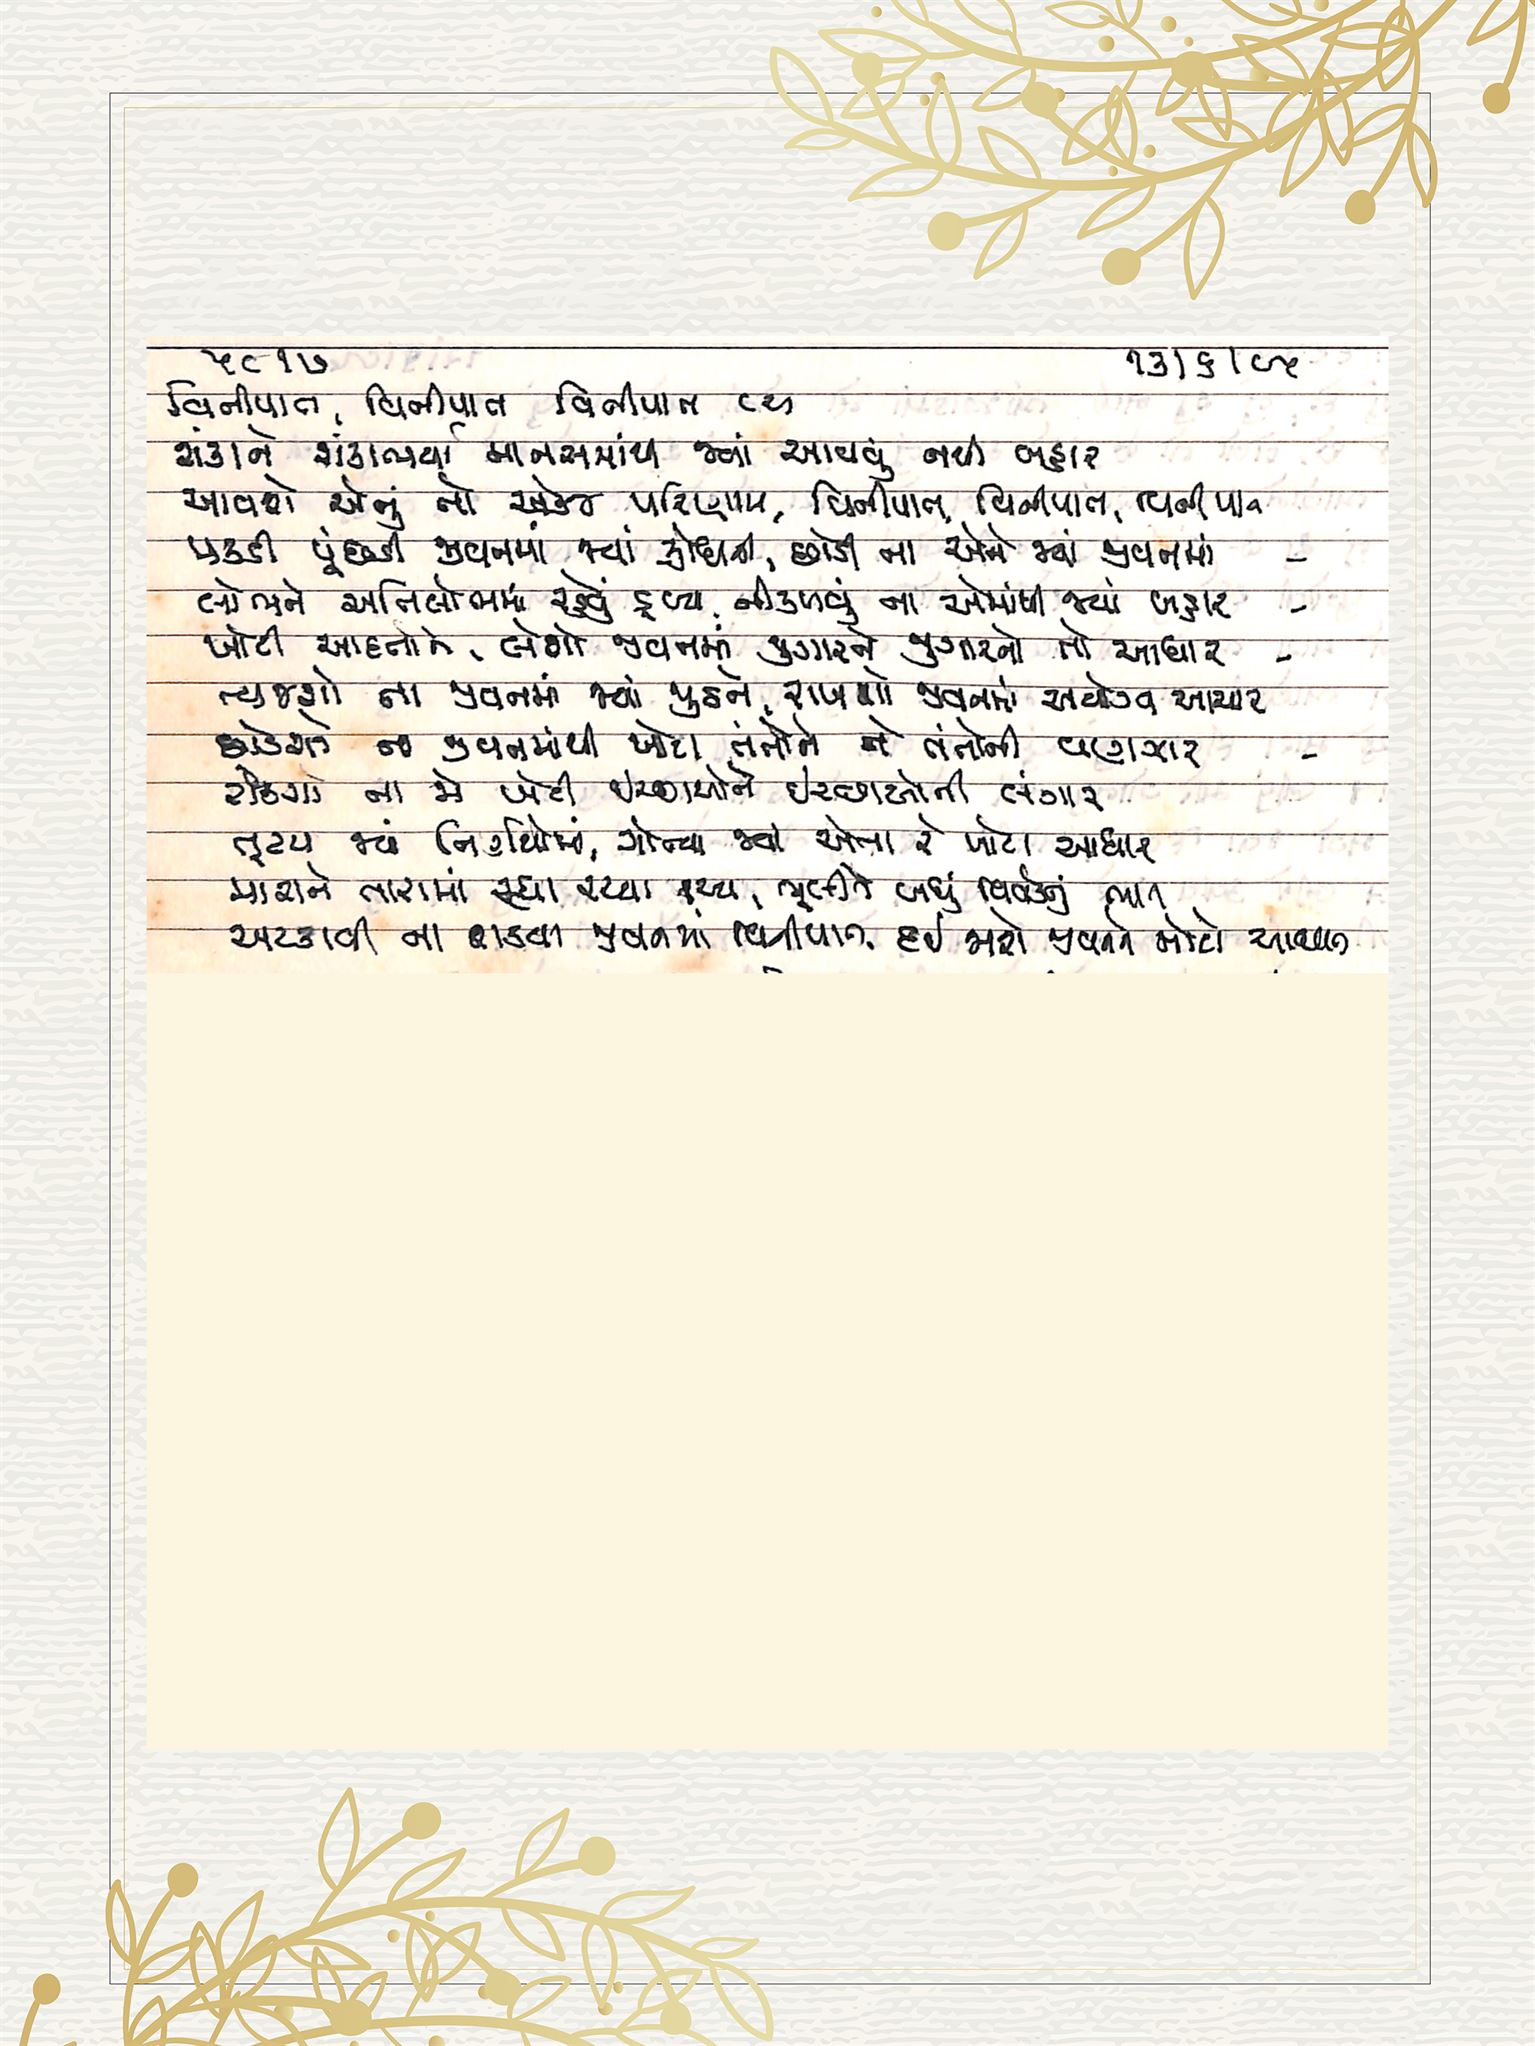 ૫૮૧૭ ૧૩/૬/૯૫
વિનીપાત, વિનીપાત વિનીપાત
શંકાને શંકાભર્યા માનસમાંથી જ્યાં આવવું નથી બહાર
આવશે એનું તો એકજ પરિણામ, વિનીપાત, વિનીપાત, વિનીપાત
પકડી પૂંછડી જીવનમાં જ્યાં ક્રોધની, છોડી ના એને જ્યાં જીવનમાં -
લોભને અતિલોભમાં રહેવું ડૂબ્યા, નીકળવું ના એમાંથી જ્યાં બહાર -
ખોટી આદતોને, લેશો જીવનમાં જુગારને જુગારનો તો આધાર -
ત્યજશો ના જીવનમાં જ્યાં જુઠને, રાખશો જીવનમાં અયોગ્ય આચાર
છોડશો ના જીવનમાંથી ખોટા તંતોને ને તંતોની વણઝાર -
રોકશો ના જો ખોટી ઇચ્છાઓને ઇચ્છાઓની લંગાર
તૂટયા જ્યાં નિર્ણયોમાં, ગોત્યા જ્યાં એના રે ખોટા આધાર
મારાને તારામાં રચ્યા, ભૂલીને બધું વિવેકનું ભાન
અટકાવી ના શકવા જીવનમાં વિનીપાત, દઈ જાશે જીવનને મોટો આઘાત